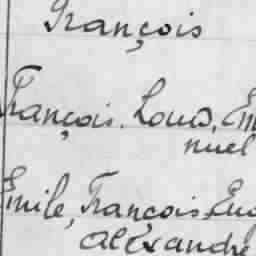 François
François. Louis, Em
nuel
Emile, François, Eug
alexandre